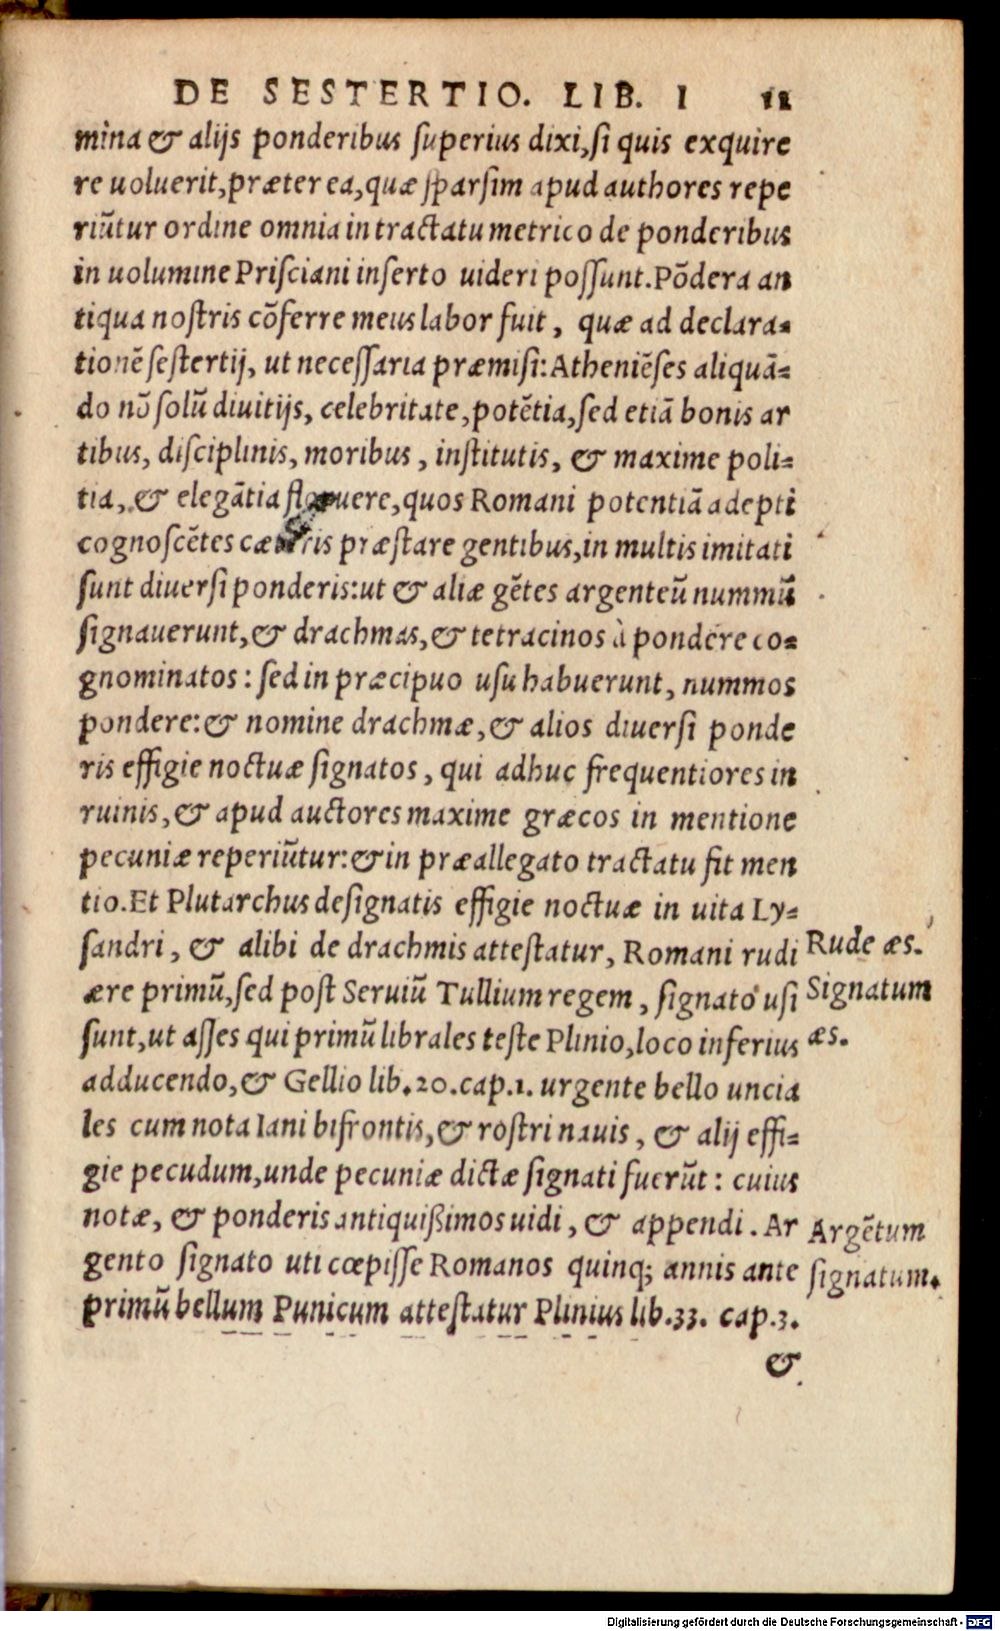 DE SESTERTIO. LIB. I 12
mina & alijs ponderibus ſuperius dixi,ſi quis exquire
re uoluerit,præter ea,quæ ſparſim apud authores repe
riūtur ordine omnia in tractatu metrico de ponderibus
in uolumine Priſciani inſerto uideri poſſunt.Pōdera an
tiqua noſtris cōferre meus labor fuit, quæ ad declara-
tionē ſeſtertij, ut neceſſaria præmiſi:Atheniēſes aliquā-
do nō ſolū diuitijs, celebritate,potētia,ſed etiā bonis ar
tibus, diſciplinis, moribus, inſtitutis, & maxime poli-
tia, & elegātia floruere,quos Romani potentiā adepti
cognoſcētes cæteris præſtare gentibus,in multis imitati
ſunt diuerſi ponderis:ut & aliæ gētes argenteū nummū
ſignauerunt,& drachmas,& tetracinos à pondere co-
gnominatos: ſed in præcipuo uſu habuerunt, nummos
pondere:& nomine drachmæ,& alios diuerſi ponde
ris effigie noctuæ ſignatos, qui adhuc frequentiores in
ruinis,& apud auctores maxime græcos in mentione
pecuniæ reperiūtur:& in præallegato tractatu fit men
tio.Et Plutarchus deſignatis effigie noctuæ in uita Ly-
ſandri, & alibi de drachmis atteſtatur, Romani rudi
ære primū,ſed poſt Seruiū Tullium regem, ſignato uſi
ſunt,ut aſſes qui primū librales teſte Plinio,loco inferius
adducendo,& Gellio lib.20.cap.1. urgente bello uncia
les cum nota Iani bifrontis,& roſtri nauis, & alij effi-
gie pecudum,unde pecuniæ dictæ ſignati fuerūt: cuius
notæ, & ponderis antiquißimos uidi, & appendi. Ar
gento ſignato uti cœpiſſe Romanos quinq; annis ante
primū bellum Punicum atteſtatur Plinius lib.33. cap.3.
&
Rude æs.
Signatum
æs.
Argētum
ſignatum.
Digitalisierung gefördert durch die Deutsche Forschungsgemeinschaft - DFG